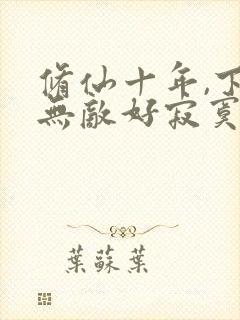 脩仙十年,下
無敵好寂寞
葉蘇葉